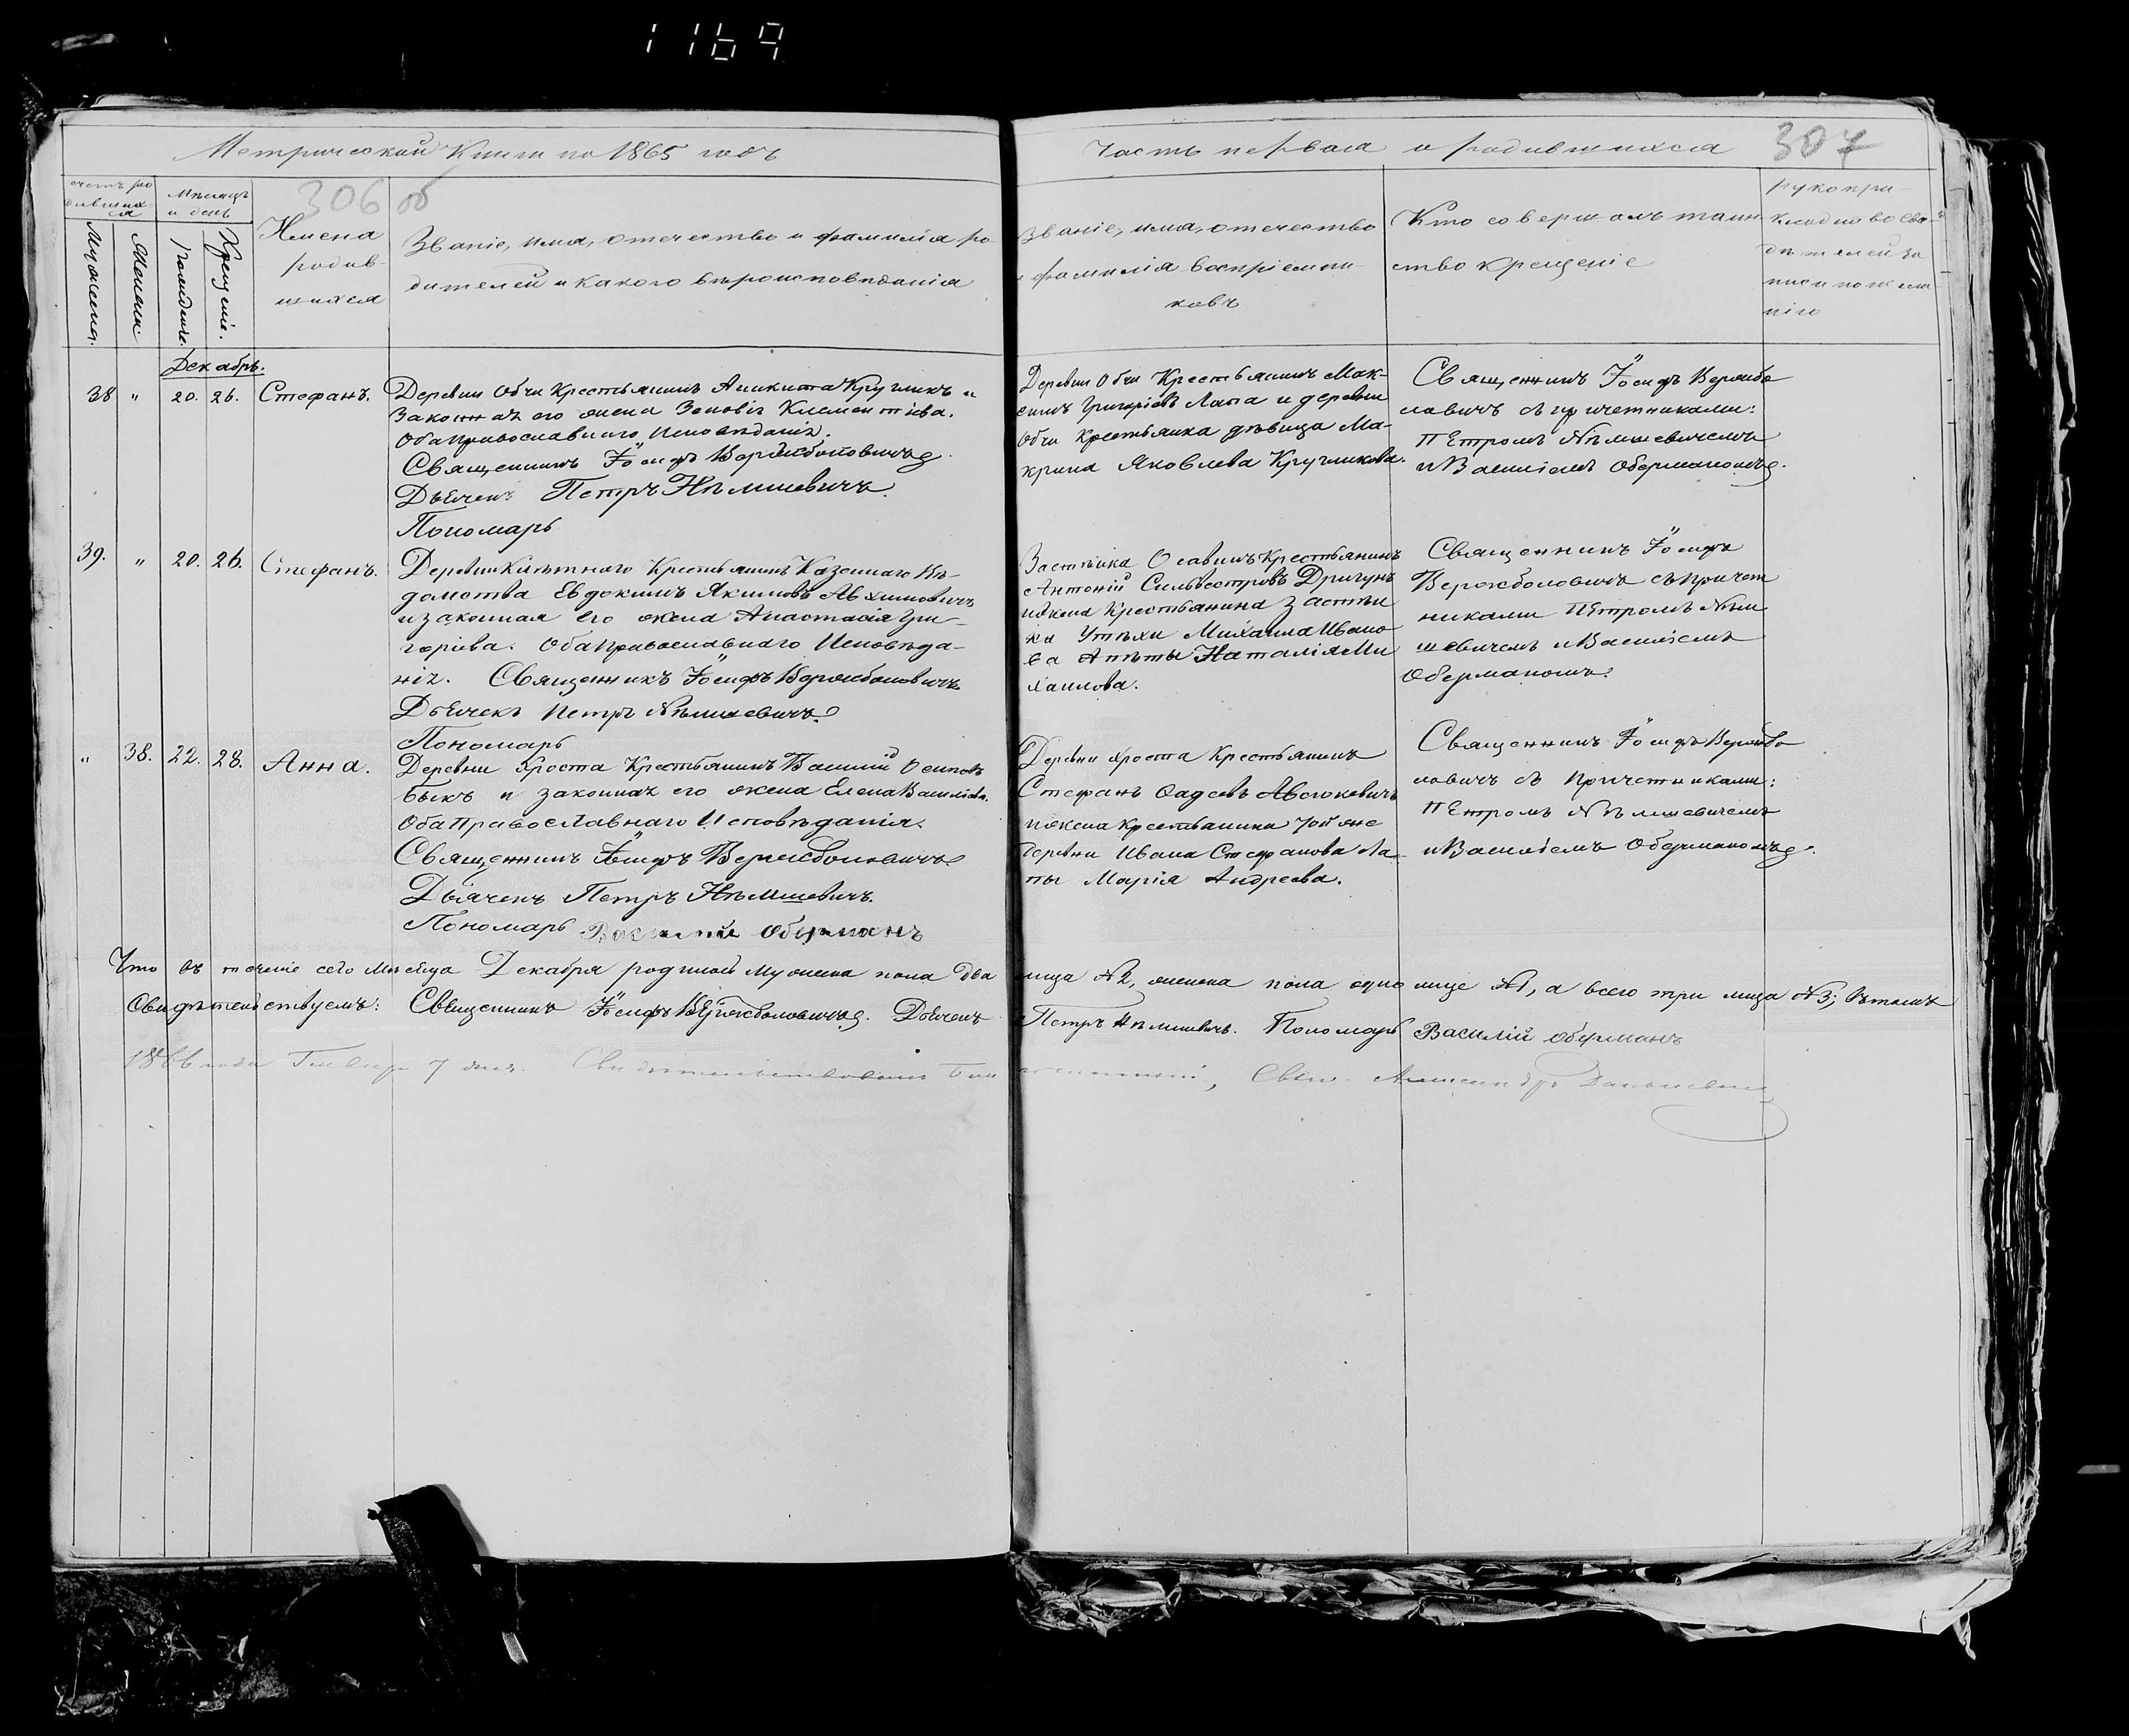 1169
Метрической Книги на 1865 годъ
Часть первая о родившихся
307
306 об
счетъ родившихся
Мѣсяцъ и день
Мужеска.
Женска.
Рожденіе.
Крещеніе.
Имена родившихся
Званіе, имя, отечество и фамилія ро-
дителей и какого вѣроисповѣданія
Званіе, имя, отечество
и фамилія воспріемни-
ковъ
Кто совершалъ таин-
ство крещеніе
рукопри-
кладство сви-
дѣтелей за
писи по жела-
нію
Декабрь.
38 " 20. 26. Стефанъ.
Деревни Обчи Крестьянинъ Аникита Кругликъ и
Законная его жена Зеновія Климентіева.
Оба православнаго Исповѣданія.
Священникъ Іосифъ Вержболовичъ
Дьячекъ Петръ Нѣмшевичъ.
Пономарь
Деревни Обчи Крестьянинъ Мак-
симъ Григорьевъ Лапа и деревни
Обчи Крестьянка дѣвица Ма-
крина Яковлева Кругликова.
Священникъ Іосифъ Вержбо
ловичъ съ причетниками:
Петромъ Нѣмшевичемъ
и Василіемъ Оберманомъ.
39. " 20. 26. Стефанъ.
Деревни Клѣтнаго Крестьянинъ Казеннаго Вѣ-
домства Евдокимъ Якимовъ Авхимовичъ
и законная его жена Анастасія Гри-
горіева. Оба православнаго Исповѣда-
нія. Священникъ Іосифъ Вержболовичъ
Дьячекъ Петръ Нѣмшевичъ
Пономарь
Застѣнка Крестьянинъ
Антоній Сильвестровъ Дригунъ
и жена Крестьянина Застѣн
ка Утѣхи Михаила Ивано
ва Наталія Ми
хаилова.
Священникъ Іосифъ
Вержболовичъ съ причет
никами Петромъ Нѣм
шевичемъ и Василіемъ
Оберманомъ.
" 38. 22. 28. Анна.
Деревни Хроста Крестьянинъ Василий Осиповъ
Быкъ и законная его жена Елена Васильева.
Оба Православнаго Исповѣданія.
Священникъ Іосифъ Вержболовичъ
Дьячекъ Петръ Нѣмшевичъ.
Пономарь Василій Оберманъ
Деревни Хроста Крестьянинъ
Стефанъ Фадеевъ
и жена Крестьянина той же
деревни Ивана Стефанова Ла-
пы Марія Андреева.
Священникъ Іосифъ Вержбо
ловичъ съ Причетниками:
Петромъ Нѣмшевичемъ
и Василіемъ Оберманомъ.
Что въ теченіе сего Мѣсяца Декабря родилось мужеска пола два лица №2, женска пола одно лице №1, а всего три лица №3; въ томъ
Свидѣтельствуемъ: Священникъ Іосифъ Вержболовичъ. Дьячекъ Петръ Нѣмшевичъ. Пономарь Василій Оберманъ
1866 года Генваря 7 дня. Свидѣтельствовалъ Свящ. Александръ